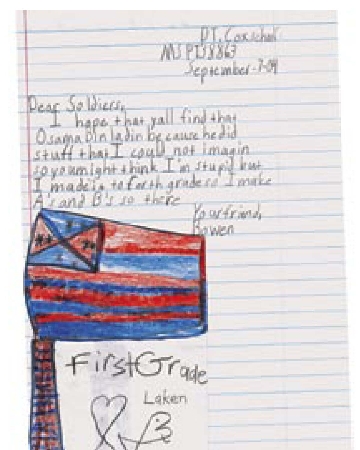 D.T. Cox school
MS PT38863
September-7-04
Dear Soldiers,
I hope that yall find that
Osama bin ladin because he did
stuff that I could not imagin
so you might think I'm stupid but
I made it to forth grade so I make
A's and B's so there
Your friend,
Bowen
First Grade
Laken